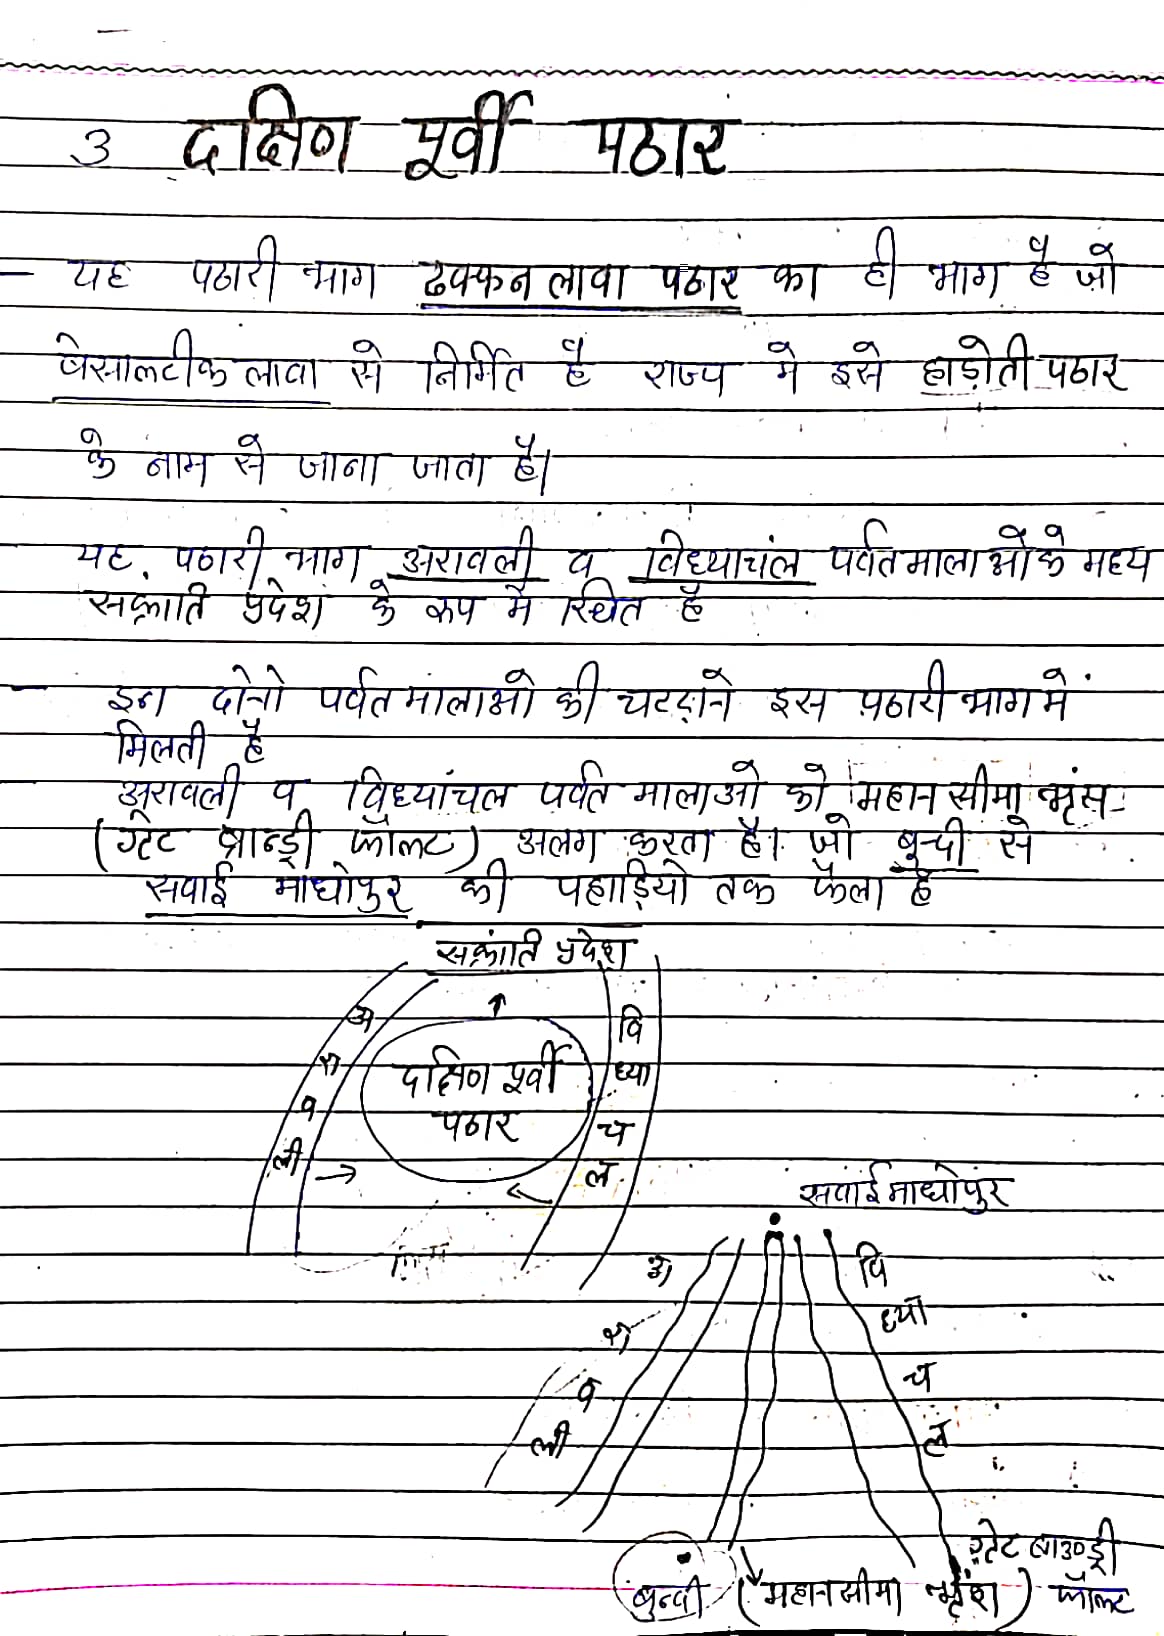 3 दक्षिण पूर्वी पठार
यह पठारी भाग ढक्कन लावा पठार का ही भाग है जो
बेसालटीक लावा से निर्मित है राज्य मे इसे हाड़ोती पठार
के नाम से जाना जाता है।
यह पठारी भाग अरावली व विध्याचंल पर्वतमालाओ के मध्य
सक्रांति प्रदेश के रूप में स्थित है
इन दोनो पर्वतमालाओ की चटट्राने इस पठारी भाग में
मिलती है
अरावली व विध्यांचल पर्वत मालाओ को महान सीमा भृंस-
(ग्रेट ब्रान्ड्री फॉल्ट) अलग करता है। जो बुन्दी से
सवाई माधोपुर की पहाड़ियो तक फैला है
सक्रांति प्रदेश
अ
रा
व
ली
दक्षिण पूर्वी
पठार
वि
ध्या
च
ल
सवाई माधोपुर
अ
रा
व
ली
वि
ध्या
च
ल
ग्रेट बाउण्ड्री
बुन्दी (महान सीमा भृंश) फॉल्ट